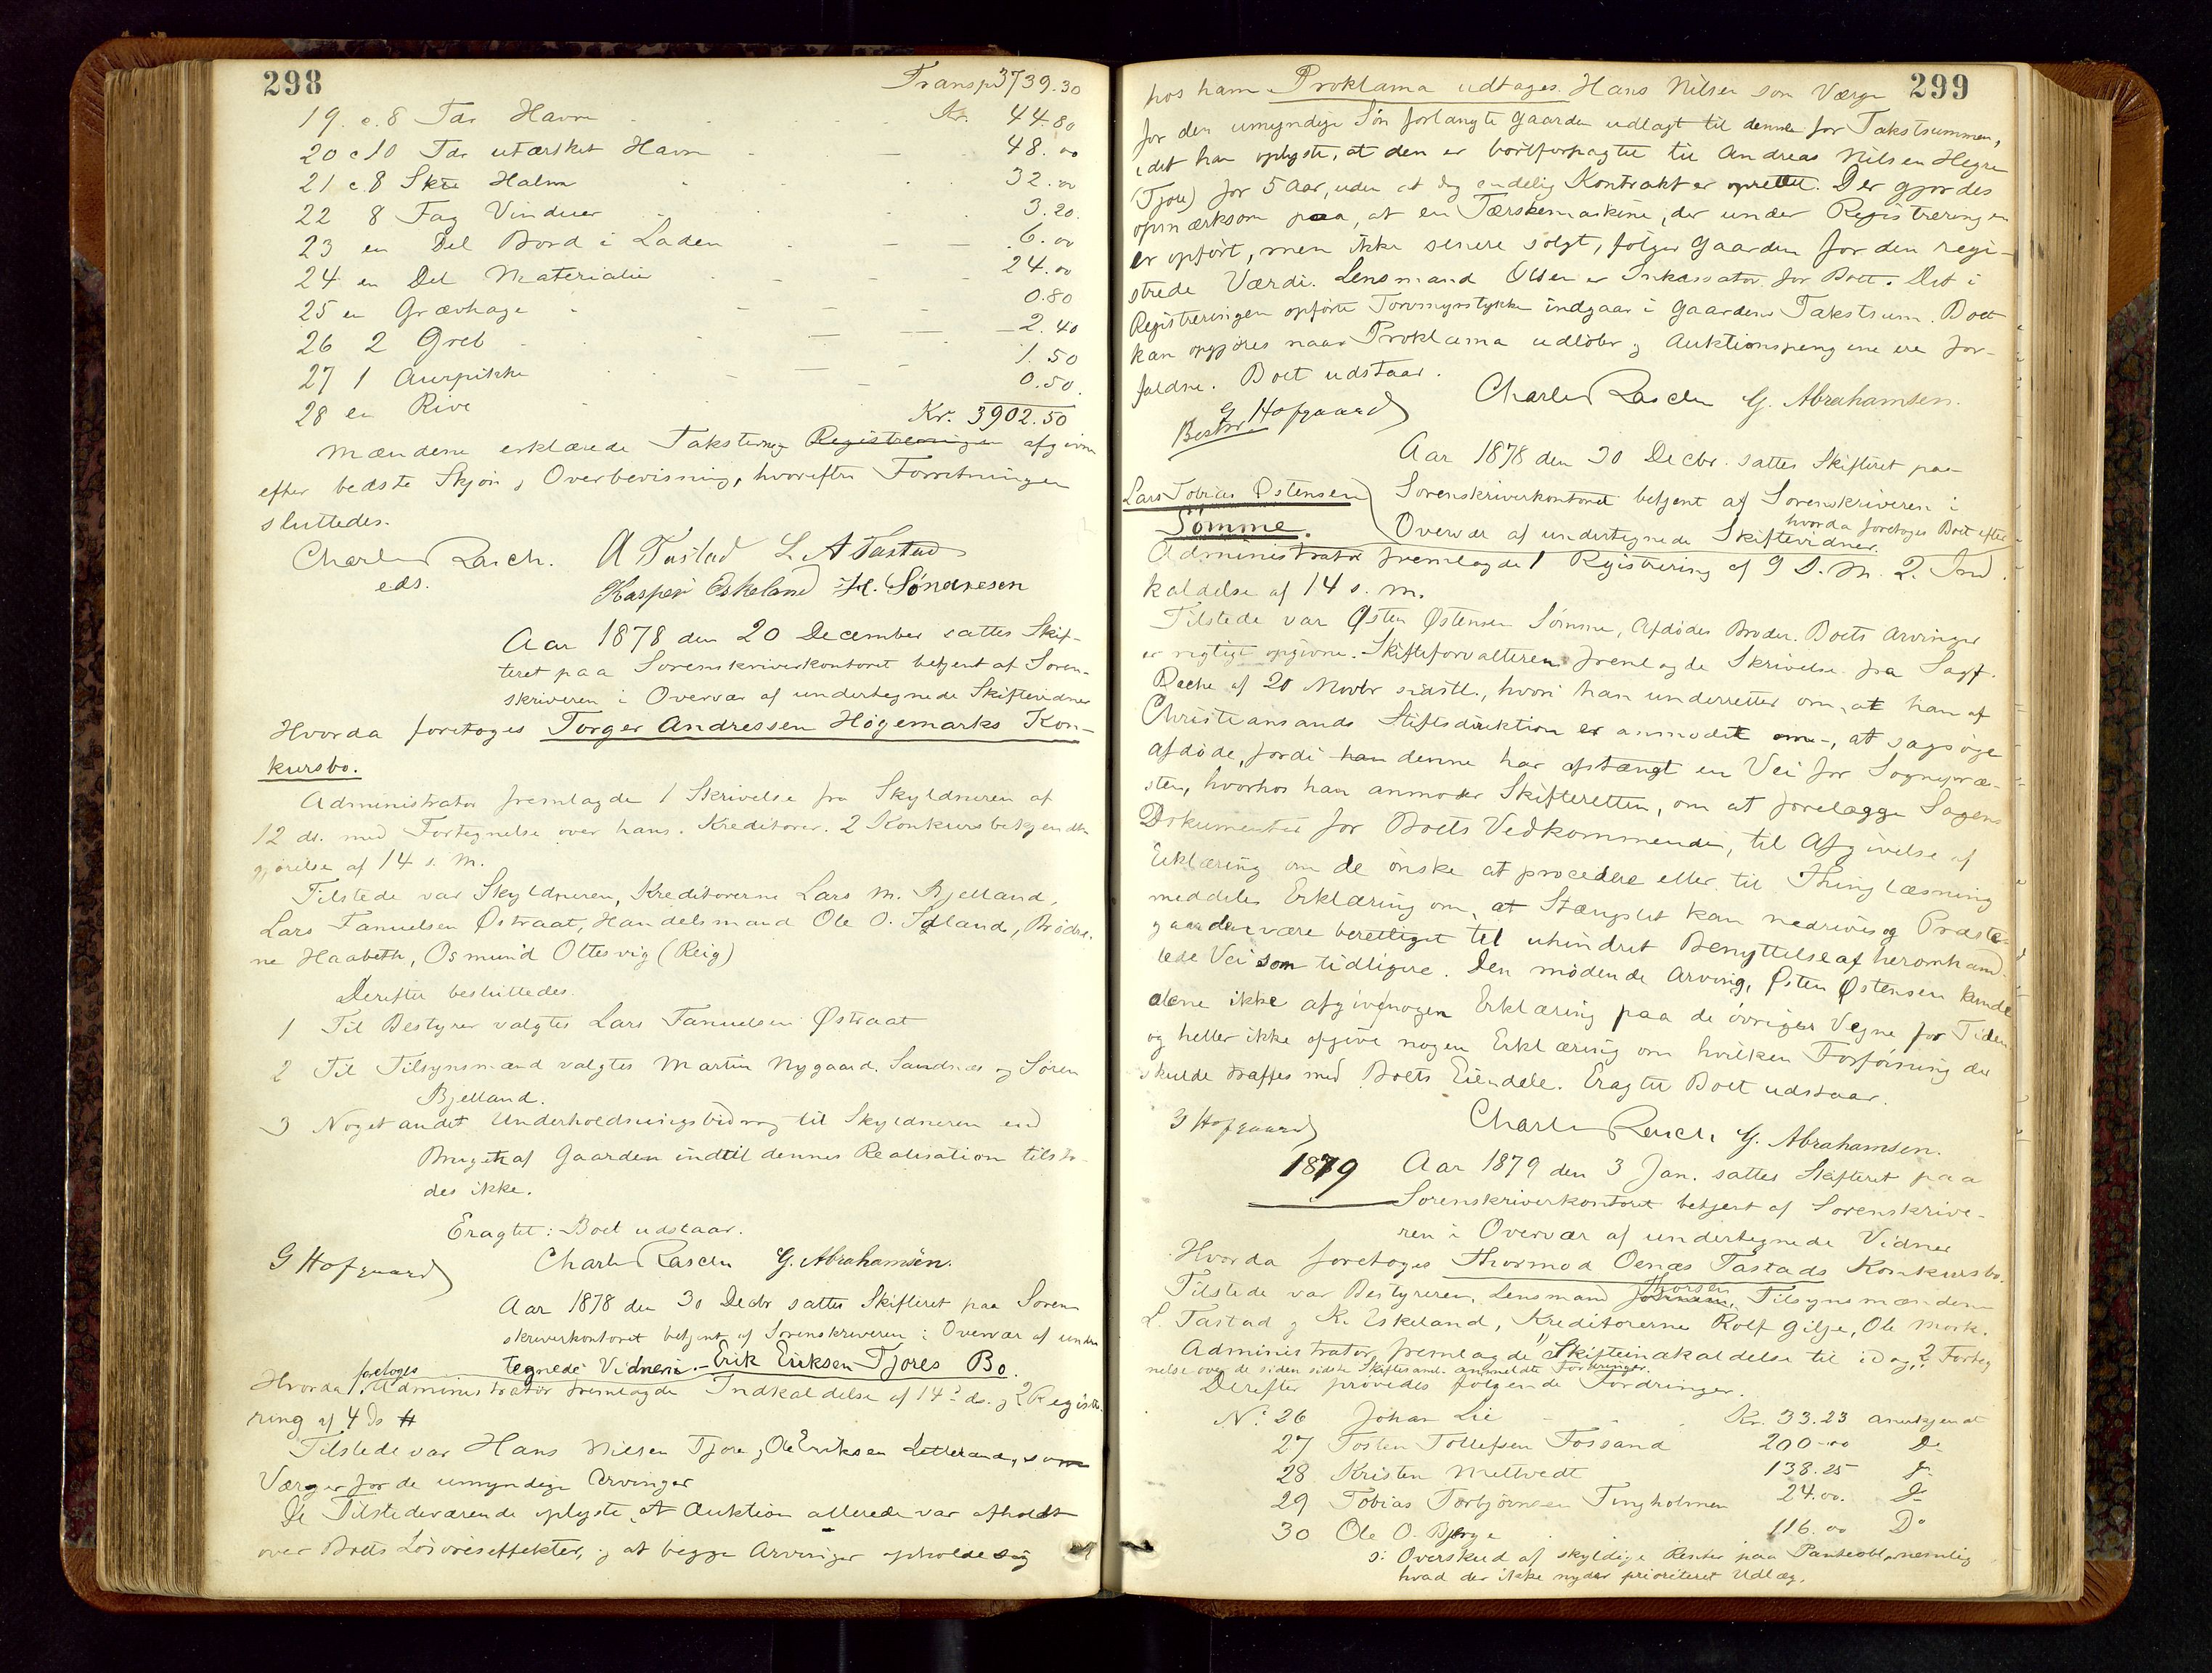 298
Transp. 3739.30
19. c. 8 Tdr Havre Kr. 44.80
20 c 10 Tdr utærsket Havre — 48.00
21 c. 8 Skte Halm 32.00
22 8 Fag Vinduer 3.20.
23 en Del Bord i Laden — — 6.00
24 en Del Materialier — — 24.00
25 en Grævhage — — 0.80
26 2 Greb — — 2.40
27 1 Aurpikke — — 1.50
28 en Rive 0.50
Kr. 3902.50
Mændene erklærede Taksterne Registreringen afgivne
efter bedste Skjøn og Overbevisning, hvorefter Forretningen
sluttedes.
Charles Rasch. A Tastad L A Tastad
eds. Kasper Eskeland H. Sondresen
Aar 1878 den 20 December sattes Skif-
teret paa Sorenskriverkontoret betjent af Soren-
skriveren i Overvær af undertegnede Skiftevidner
Hvorda foretoges Torger Andressen Høgemarks Kon-
kursbo.
Administrator fremlagde 1 Skrivelse fra Skyldneren af
12 ds. med Fortegnelse over hans Kreditorer. 2 Konkursbekjendt-
gjørelse af 14 s. M.
Tilstede var Skyldneren, Kreditorerne Lars M. Bjelland,
Lars Tanuelsen Østraat, Handelsmand Ole O. Idland, Brødre-
ne Haabeth, Osmund Ollesvig (Reig)
Derefter besluttedes.
1 Til Bestyrer valgtes Lars Tanuelsen Østraat
2 Til Tilsynsmænd valgtes Martin Nygaard, Sandnæs og Søren
Bjelland.
3 Noget andet Underholdningsbidrag til Skyldneren end
Brugen af Gaarden indtil dennes Realisation tilsto-
des ikke.
Eragtet: Boet udstaar.
G Hofgaard Charles Rasch G. Abrahamsen.
Aar 1878 den 30 Decbr sattes Skifteret paa Soren
skriverkontoret betjent af Sorenskriveren i Overvær af under
tegnede Vidner. Erik Eriksen Tjores Bo.
Hvorda foretoges Administrator fremlagde 1 Indkaldelse af 14 ds. og 2 Registre-
ring af 4 ds
Tilstede var Hans Nilsen Tjore, Ole Eriksen, som
Værger for de umyndige Arvinger
De Tilstedeværende oplyste, at Auktion allerede var afholdt
over Boets Løsøreseffekter, og at begge Arvinger opholde sig
299
hos ham. Proklama udtages. Hans Nilsen som Værge
for den umyndige Søn forlangte Gaarden udlagt til denne for Takstsummen,
idet han oplyste, at den er bortforpagtet til Andreas Nilsen Hegre
(Tjore) for 5 Aar, uden at dog endelig Kontrakt er oprettet. Der gjordes
opmærksom paa, at en Tærskemaskine, der under Registreringen
er opført, men ikke senere solgt, følger Gaarden for den regi-
strede Værdi. Lensmand Olsen er Inkassator for Boet. Det i
Registreringen opførte Torvmyrstykke indgaar i Gaardens Takstsum. Boet
kan opgjøres naar Proklama udløber og Auktionspengene ere for-
faldne. Boet udstaar.
G. Hofgaard Charles Rasch G. Abrahamsen.
Bestyr.
Aar 1878 den 30 Decbr. sattes Skifteret paa
Lars Tobias Østensen Sorenskriverkontoret betjent af Sorenskriveren i
Sømme. Overvær af undertegnede Skiftevidner. hvorda foretoges Boet efter
Administrator fremlagde 1 Registrering af 9 D. M. 2. Ind
kaldelse af 14 s. M.
Tilstede var Østen Østensen Sømme, Afdødes Broder. Boets Arvinger
er rigtigt opgivne. Skifteforvalteren fremlagde Skrivelse fra Sagf.
Bache af 20 Novbr sidstl., hvori han underretter om, at han af
Christiansands Stiftsdirektion er anmodet om, at sagsøge
Afdøde, fordi han denne har afstængt en Vei for Sognepræ-
sten, hvorhos han anmoder Skifteretten, om at forelægge Sagens
Dokumenter for Boets Vedkommende, til Afgivelse af
Erklæring om de ønske at procedere eller til Thinglæsning
meddeles Erklæring om, at Stængslet kan nedrives og Præste-
gaarden være berettiget til uhindret Benyttelse af heromhand-
lede Vei som tidligere. Den mødende Arving, Østen Østensen kunde
alene ikke afgive nogen Erklæring paa de øvriges Vegne for Tiden
og heller ikke afgive nogen Erklæring om hvilken Forføining der
skulde træffes med Boets Eiendele. Eragtet Boet udstaar.
G Hofgaard Charles Rasch G. Abrahamsen.
1879 Aar 1879 den 3 Jan. sattes Skifteret paa
Sorenskriverkontoret betjent af Sorenskrive-
ren i Overvær af undertegnede Vidner
Hvorda foretoges Thormod Oenæs Tastads Konkursbo.
Tilstede var Bestyreren, Lensmand Thorsen, Tilsynsmændene
L. Tastad og K. Eskeland, Kreditorerne Rolf Gilje, Ole Mork.
Administrator fremlagde 1 Skifteindkaldelse til idag, 2 Forteg
nelse over de siden sidste Skiftesaml. anmeldte Fordringer.
Derefter prøvedes følgende Fordringer.
No. 26 Johan Lie Kr. 33.23 anerkjendt
27 Tosten Tollefsen Fossand 200.00 Do
28 Kristen Meltvedt 138.25 Do
29 Tobias Torbjørnsen Tingholmen 24.00. Do
30 Ole O. Bjerge 116.00 Do
ɔ: Overskud af skyldige Renter paa Panteobl. nemlig
hvad der ikke nyder prioriteret Udlæg.